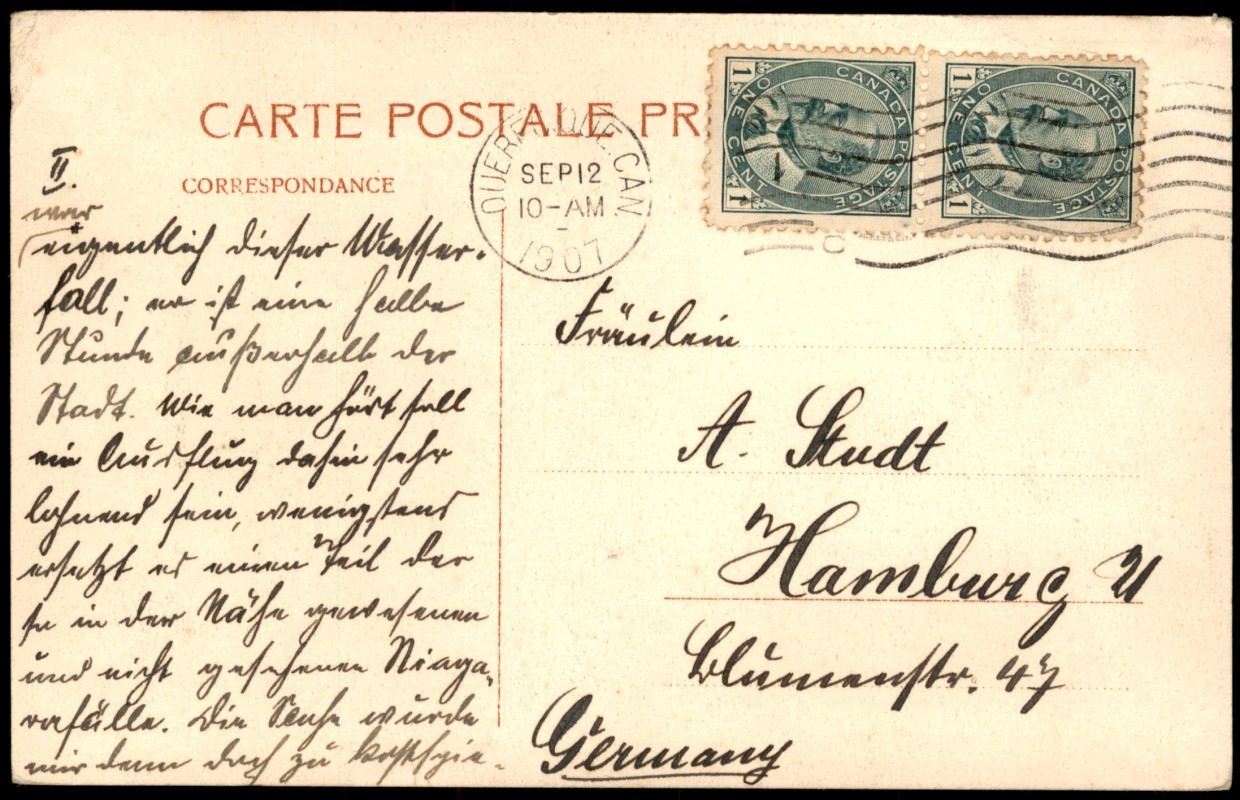 CARTE POSTALE PR
CORRESPONDANCE
QUEBEC, QUE. CAN.
SEP 12
10-AM
1907
CANADA POSTAGE
ONE CENT
1 1
CANADA POSTAGE
ONE CENT
1 1
II.
war
eigentlich dieser Wasser-
fall; er ist eine halbe
Stunde außerhalb der
Stadt. Wie man hört soll
ein Ausflug dahin sehr
lohnend sein, wenigstens
ersetzt es einen Teil der
so in der Nähe gewesenen
und nicht gesehenen Niaga-
rafälle. Die Sache wurde
mir denn doch zu kostspie-
Fräulein
A. Studt
Hamburg 21
Blumenstr. 47
Germany